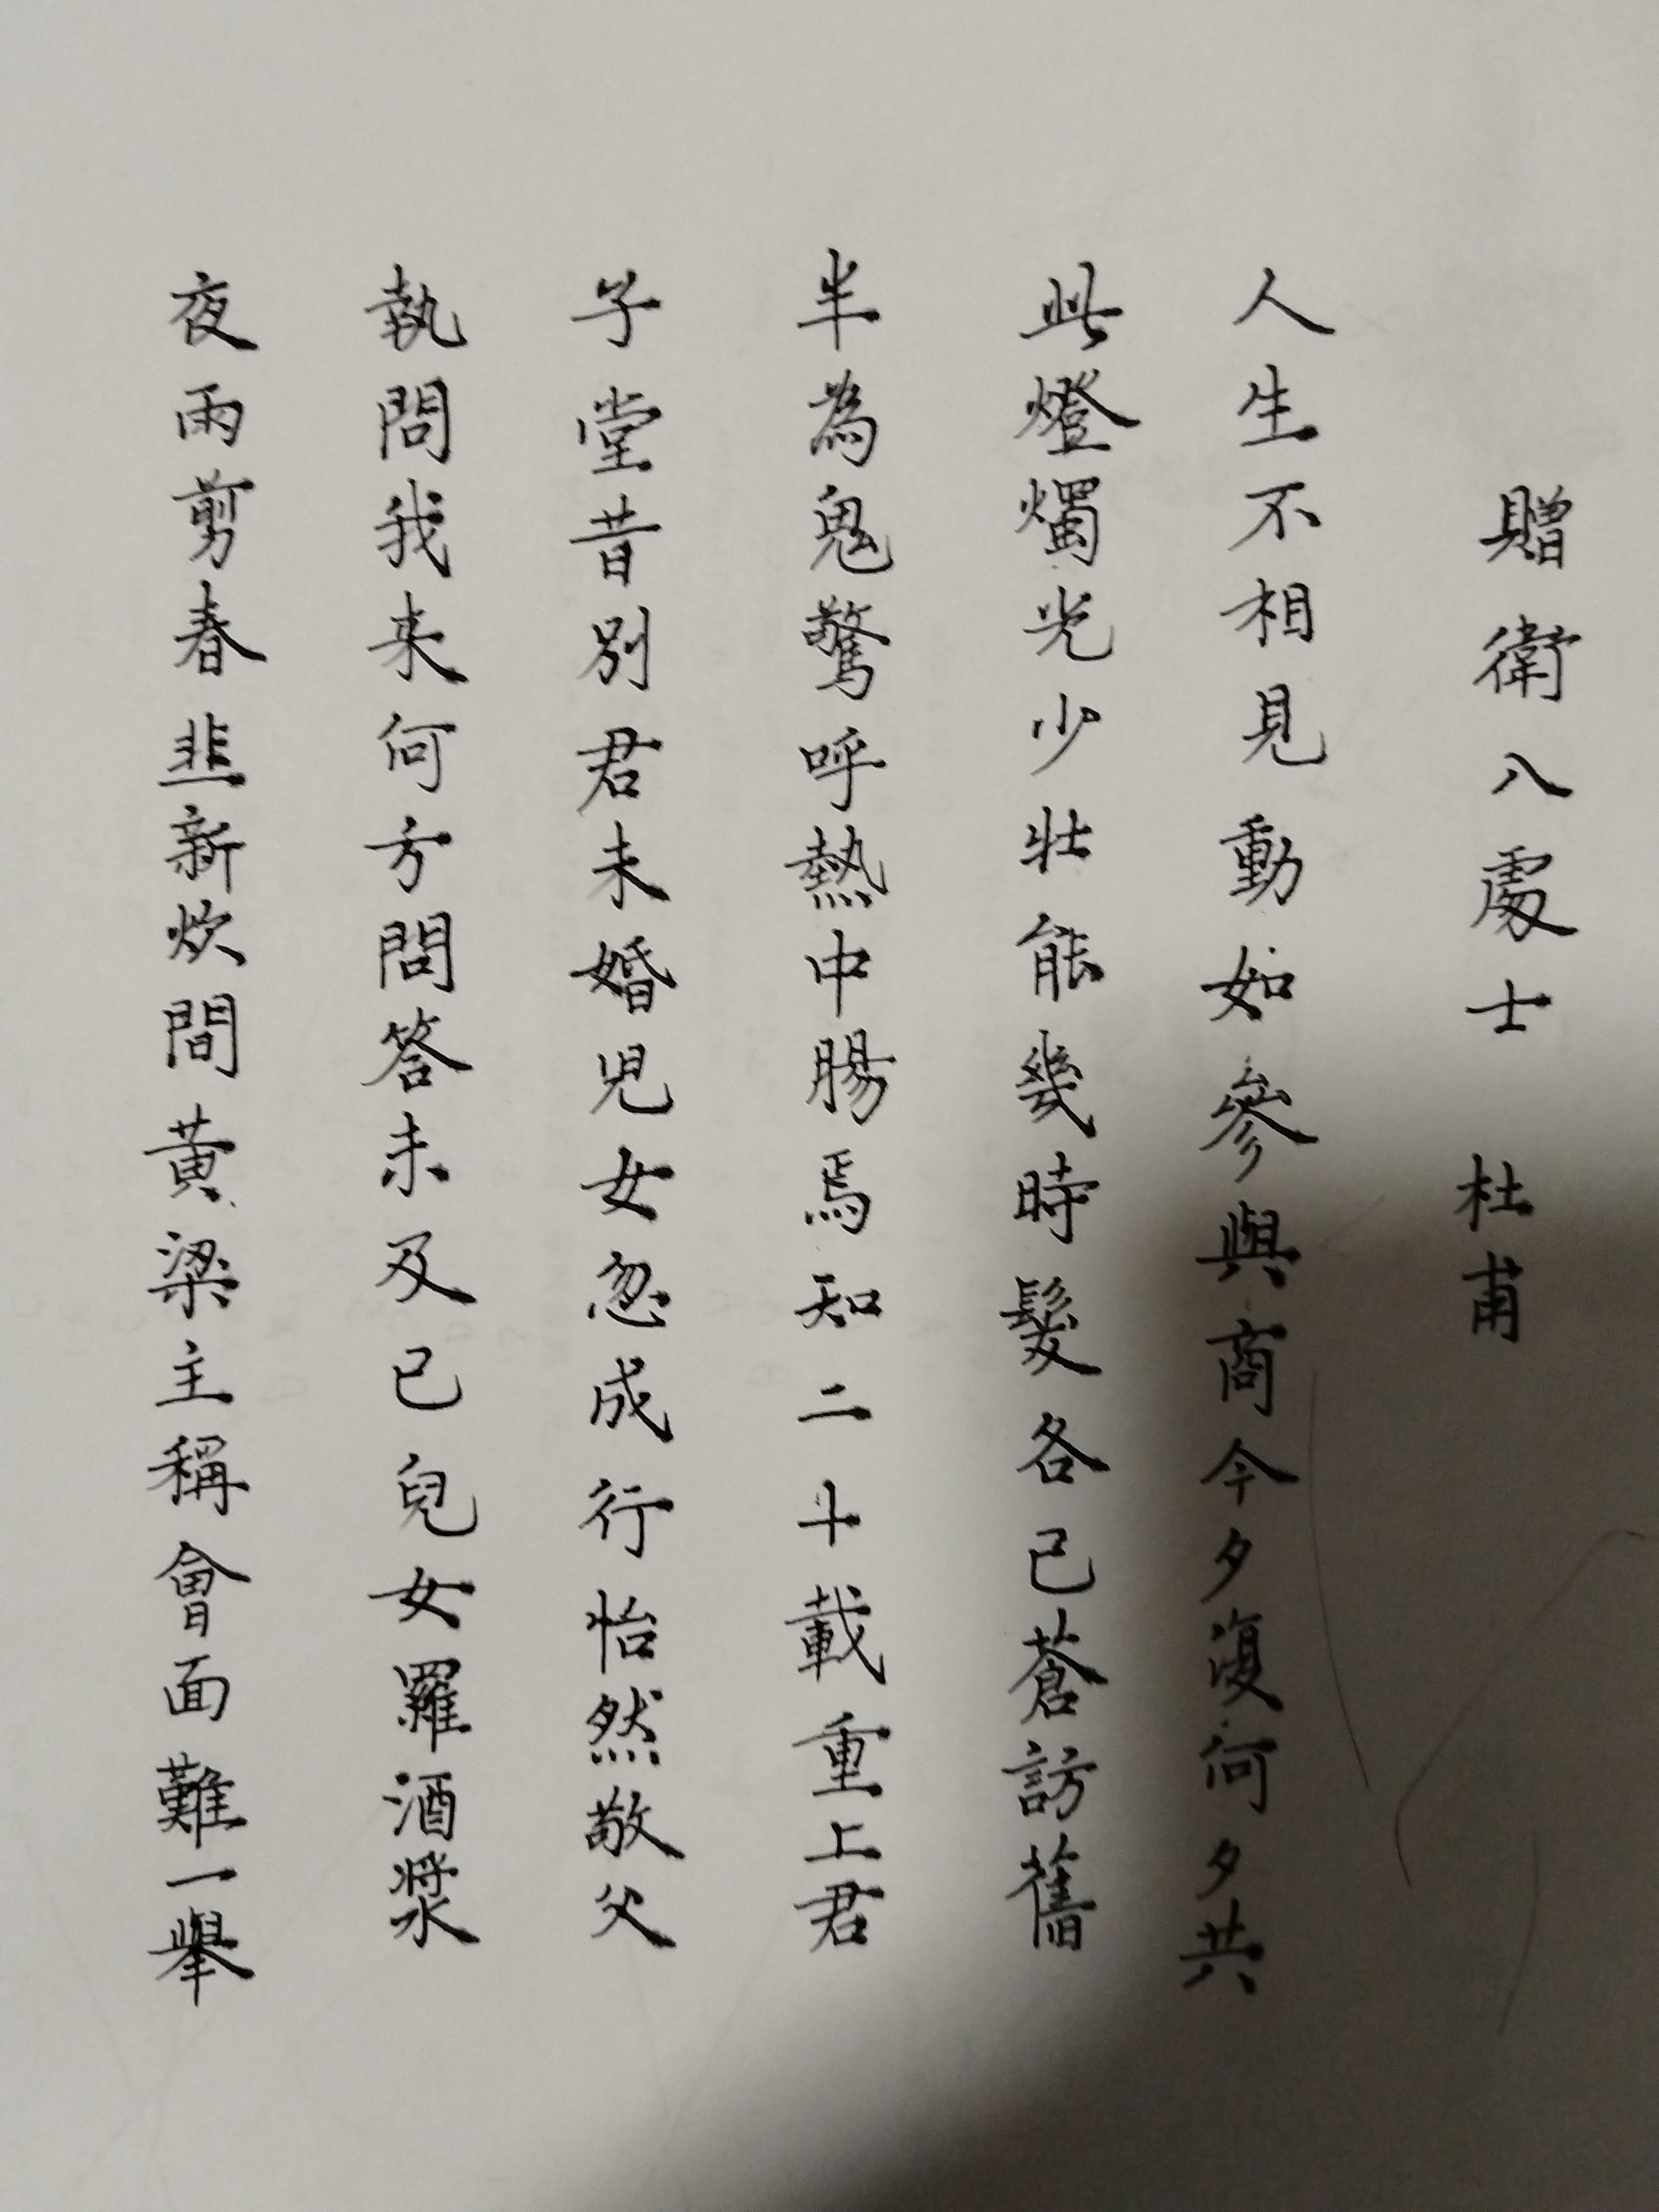 贈衛八處士 杜甫
人生不相見動如參與商今夕復何夕共
此燈燭光少壯能幾時髮各已蒼訪舊
半為鬼驚呼熱中腸焉知二十載重上君
子堂昔別君未婚児女忽成行怡然敬父
執問我来何方問答未及已兒女羅酒漿
夜雨剪春韭新炊間黄粱主稱會面難一舉